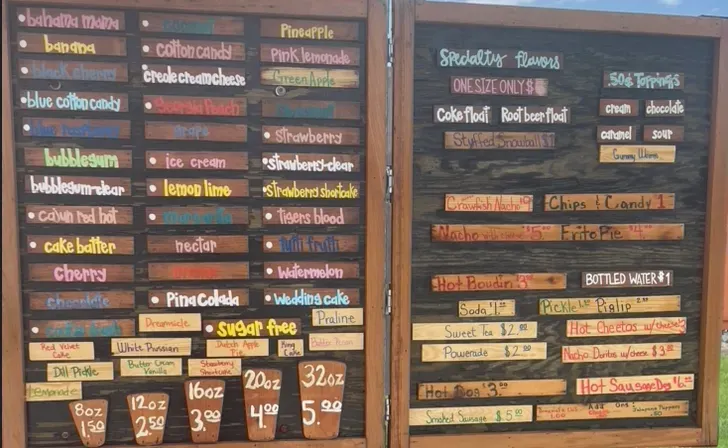 bahama mama
banana
black cherry
blue cotton candy
blue raspberry
bubblegum
bubblegum-clear
cajun red hot
cake batter
cherry
chocolate
coconut
cotton candy
creole cream cheese
Georgia Peach
grape
ice cream
lemon lime
margarita
nectar
orange
Pina Colada
Pineapple
Pink lemonade
Green Apple
strawberry
strawberry-clear
strawberry shortcake
tigers blood
tutti frutti
watermelon
wedding cake
Dreamsicle
sugar free
Praline
Red Velvet Cake
White Russian
Dutch Apple Pie
King Cake
Dill Pickle
Butter Cream Vanilla
Strawberry Shortcake
Lemonade
8oz 1.50
12oz 2.50
16oz 3.00
20oz 4.00
32oz 5.00
Specialty flavors
ONE SIZE ONLY $
Coke float
Root beer float
Stuffed Snowball $1
.50¢ Toppings
cream
chocolate
caramel
sour
Gummy Worms
Crawfish Nacho $9
Chips & Candy 1
Nacho $5.00
Frito Pie $4.00
Hot Boudin 3
BOTTLED WATER $1
Soda 1.00
Pickle 1.00 Piglip 2.00
Sweet Tea $2.00
Hot Cheetos w/cheese
Powerade $2.00
Nacho Doritos w/cheese $3.00
Hot Dog $3.00
Hot Sausage Dog $6.00
Smoked Sausage $5.00
Add Ons:
Jalapeno Peppers .50